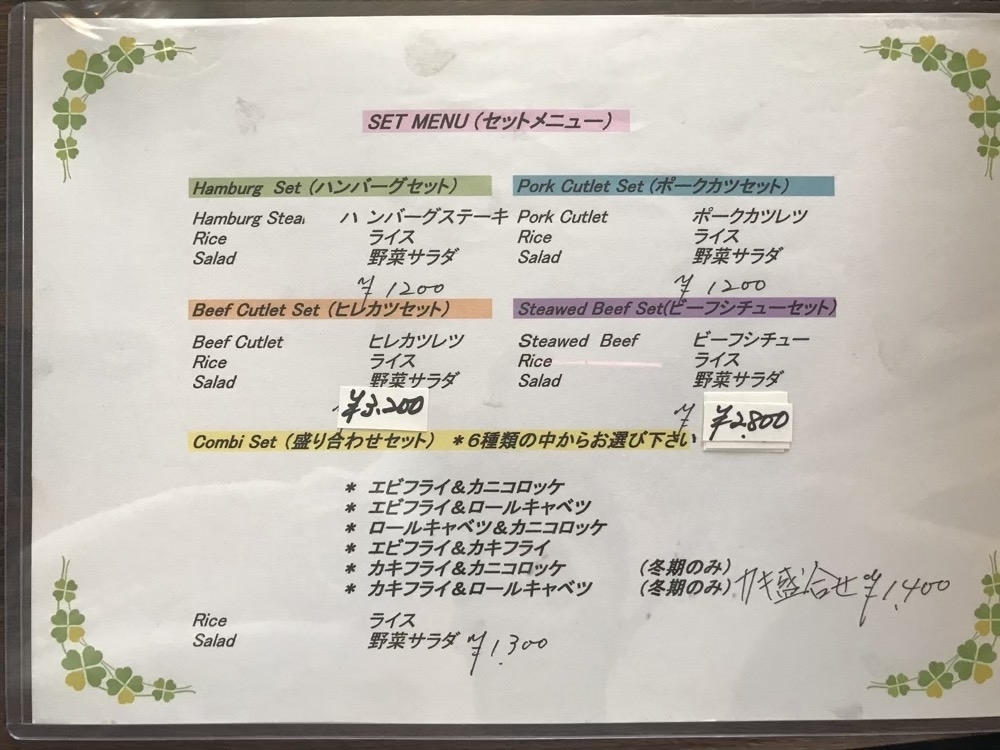 SET MENU (セットメニュー)
Hamburg Set (ハンバーグセット)
Hamburg Stea ハンバーグステーキ
Rice ライス
Salad 野菜サラダ
¥1200
Pork Cutlet Set (ポークカツセット)
Pork Cutlet ポークカツレツ
Rice ライス
Salad 野菜サラダ
¥1200
Beef Cutlet Set (ヒレカツセット)
Beef Cutlet ヒレカツレツ
Rice ライス
Salad 野菜サラダ
¥3,200
Steawed Beef Set(ビーフシチューセット)
Steawed Beef ビーフシチュー
Rice ライス
Salad 野菜サラダ
¥ ¥2,800
Combi Set (盛り合わせセット) *6種類の中からお選び下さい
* エビフライ&カニコロッケ
* エビフライ&ロールキャベツ
* ロールキャベツ&カニコロッケ
* エビフライ&カキフライ
* カキフライ&カニコロッケ (冬期のみ)
* カキフライ&ロールキャベツ (冬期のみ) カキ盛合せ ¥1,400
Rice ライス
Salad 野菜サラダ ¥1,300